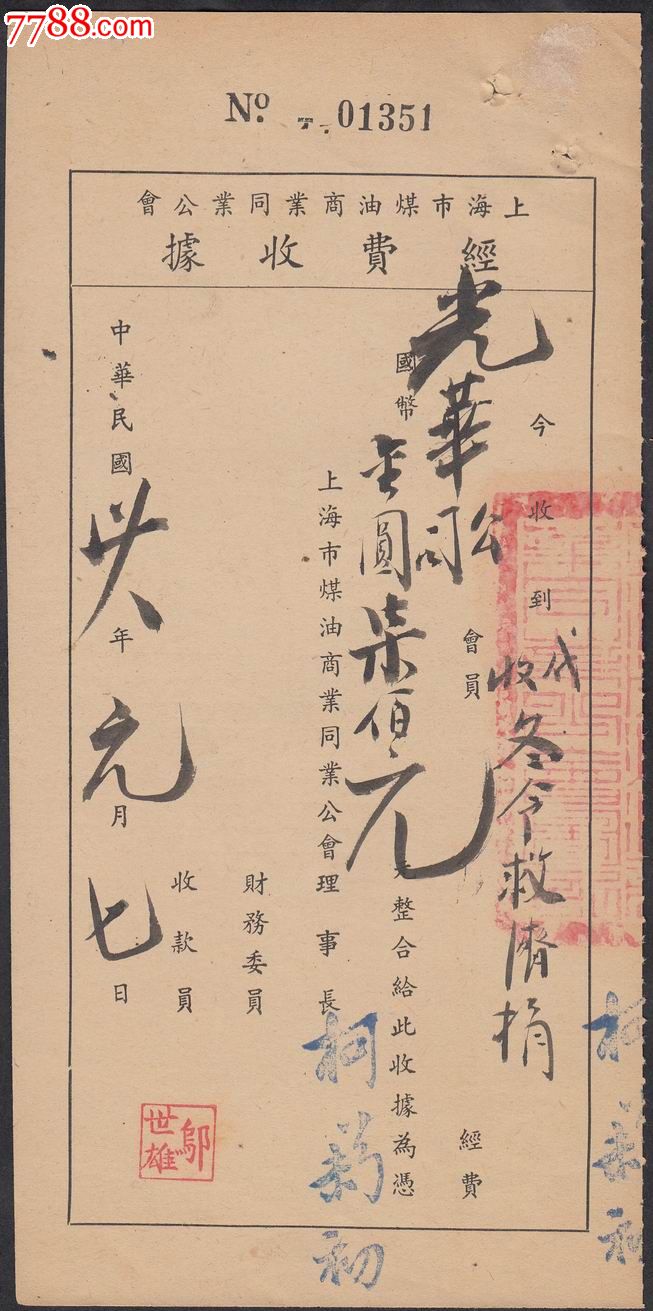 7788.com
No. 01351
上海市煤油商業同業公會
經費收據
今收到
代收冬令救濟捐
光華公司會員
經費
國幣金圓柒佰元整合給此收據為憑
上海市煤油商業同業公會理事長
柯 初
財務委員
收款員
鄔世雄
中華民國卅八年元月七日